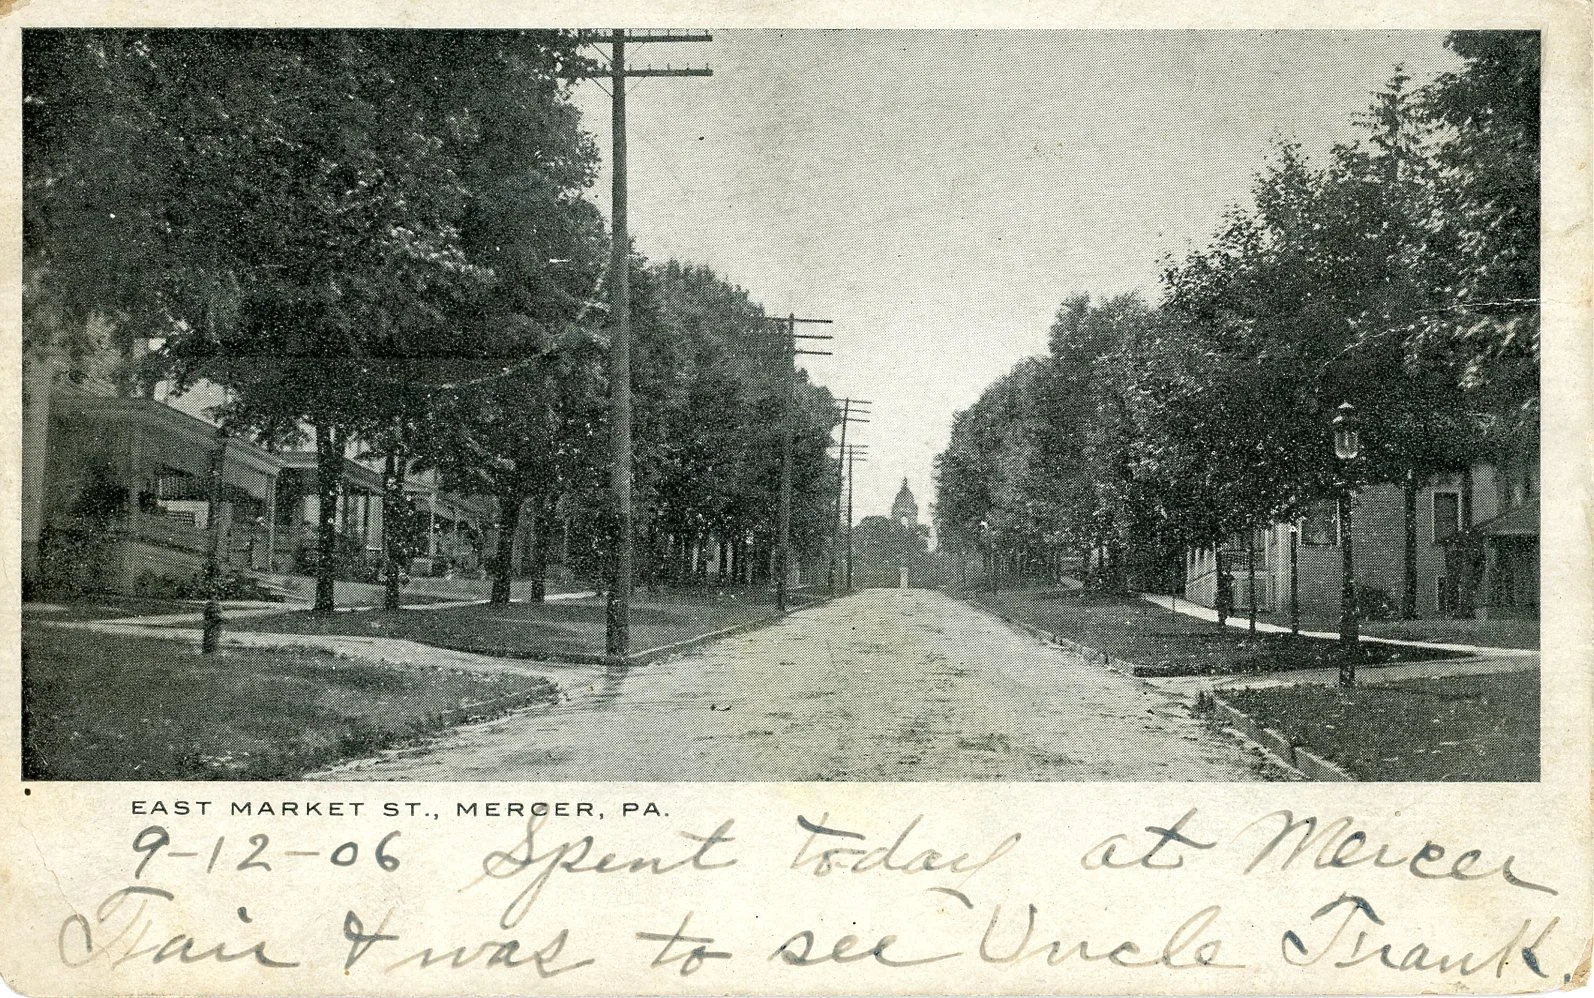 EAST MARKET ST., MERCER, PA.
9-12-06 Spent today at Mercer
Fair & was to see Uncle Frank.